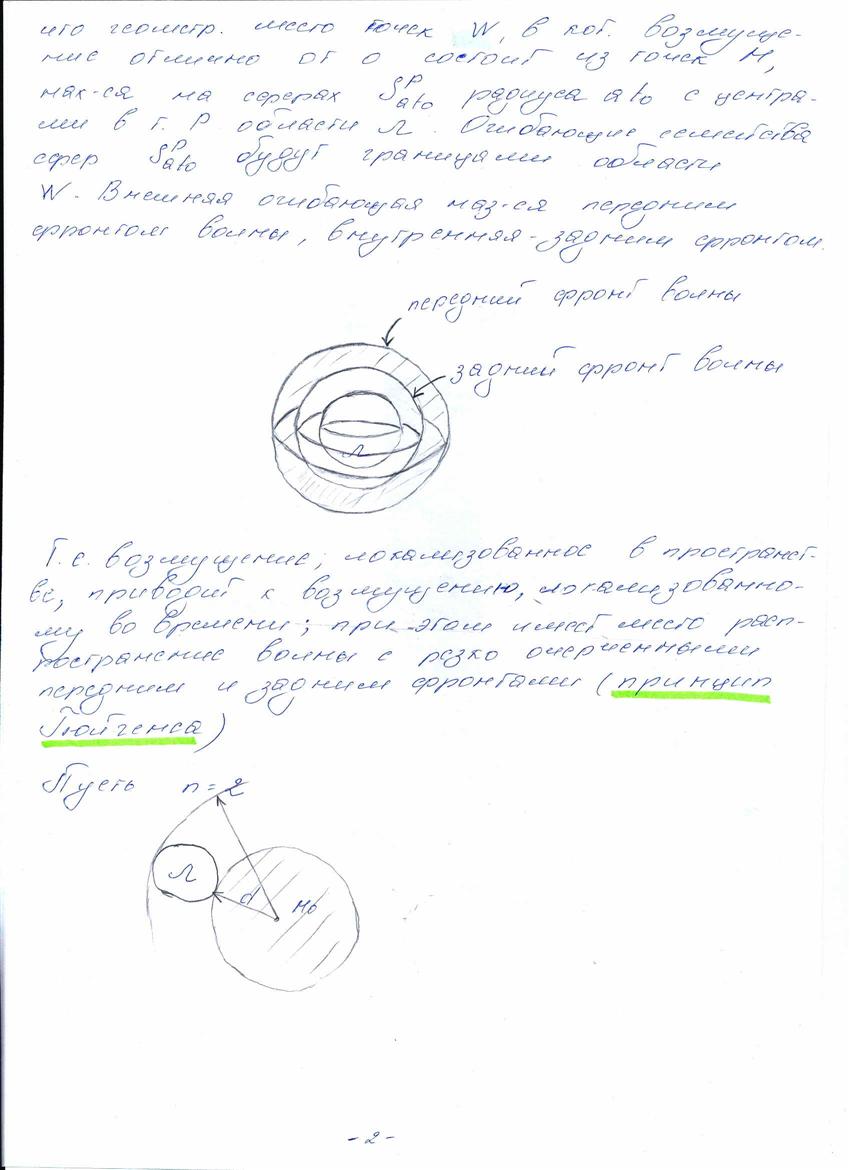 что геометр. место точек W, в кот. возмуще-
ние отлично от 0 состоит из точек M,
нах-ся на сферах S^P_{at_0} радиуса at_0 с центра-
ми в т. P области Ω. Огибающие семейства
сфер S^P_{at_0} будут границами области
W. Внешняя огибающая наз-ся передним
фронтом волны, внутренняя - задним фронтом.
передний фронт волны
задний фронт волны
Ω
Т.е. возмущение, локализованное в пространст-
ве, приводит к возмущению, локализованно-
му во времени; при этом имеет место расп-
ространение волны с резко очерченными
передним и задним фронтами (принцип
Гюйгенса)
Пусть n = 2
Ω
d
M_0
- 2 -